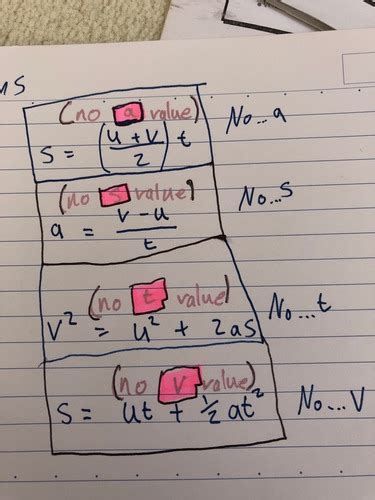 MS
(no a value)
s = (u + v / 2) t
No...a
(no s value)
a = v - u / t
No...s
(no t value)
v² = u² + 2as
No...t
(no v value)
s = ut + ½ at²
No...v